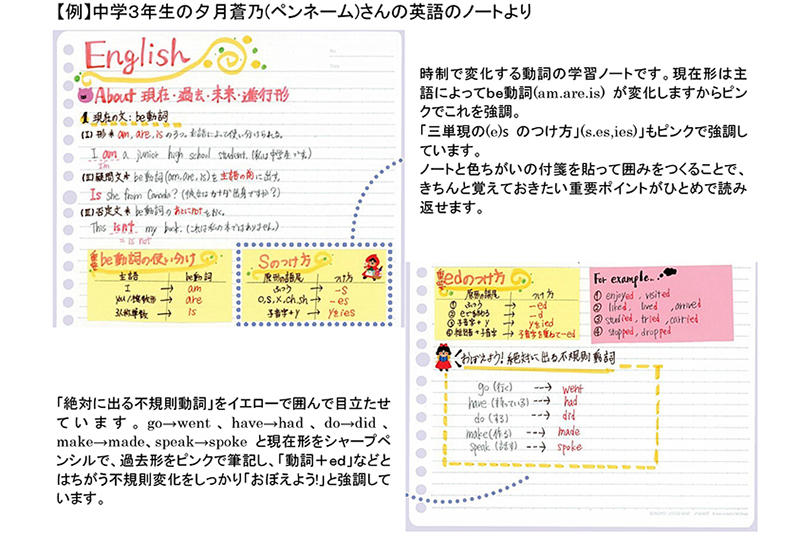 【例】中学3年生の夕月蒼乃(ペンネーム)さんの英語のノートより
English
About 現在・過去・未来・進行形
1 現在の文：be動詞
(I) 形* am, are, is の3つ。主語によって使い分けられる。
I am a junior high school student. (私は中学生です)
I'm
(II) 疑問文* be動詞(am, are, is)を主語の前に出す。
Is she from Canada? (彼女はカナダ出身ですか？)
(III) 否定文* be動詞のあとにnotをおく。
This isn't my book. (これは私の本ではありません)
= is not
重要 be動詞の使い分け
主語 be動詞
I → am
you/複数形 → are
3人称単数 → is
Sのつけ方
原形の語尾 つけ方
ふつう → -s
o,s,x,ch,sh → -es
子音字+y → yをies
時制で変化する動詞の学習ノートです。現在形は主
語によってbe動詞(am.are.is) が変化しますからピン
クでこれを強調。
「三単現の(e)s のつけ方」(s.es,ies)」もピンクで強調し
ています。
ノートと色ちがいの付箋を貼って囲みをつくることで、
きちんと覚えておきたい重要ポイントがひとめで読み
返せます。
重要 edのつけ方
原形の語尾 つけ方
① ふつう → -ed
② eで終わる → -d
③ 子音字+y → yをied
④ 短母音+子音字 → 子音字を重ねて-ed
For example...
① enjoyed, visited
② liked, lived, arrived
③ studied, tried, carried
④ stopped, dropped
おぼえよう! 絶対に出る不規則動詞
go (行く) ---> went
have (持っている) ---> had
do (する) ---> did
make (作る) ---> made
speak (話す) ---> spoke
「絶対に出る不規則動詞」をイエローで囲んで目立たせ
ています。go→went 、have→had 、do→did 、
make→made、speak→spoke と現在形をシャープペ
ンシルで、過去形をピンクで筆記し、「動詞＋ed」などと
はちがう不規則変化をしっかり「おぼえよう!」と強調して
います。